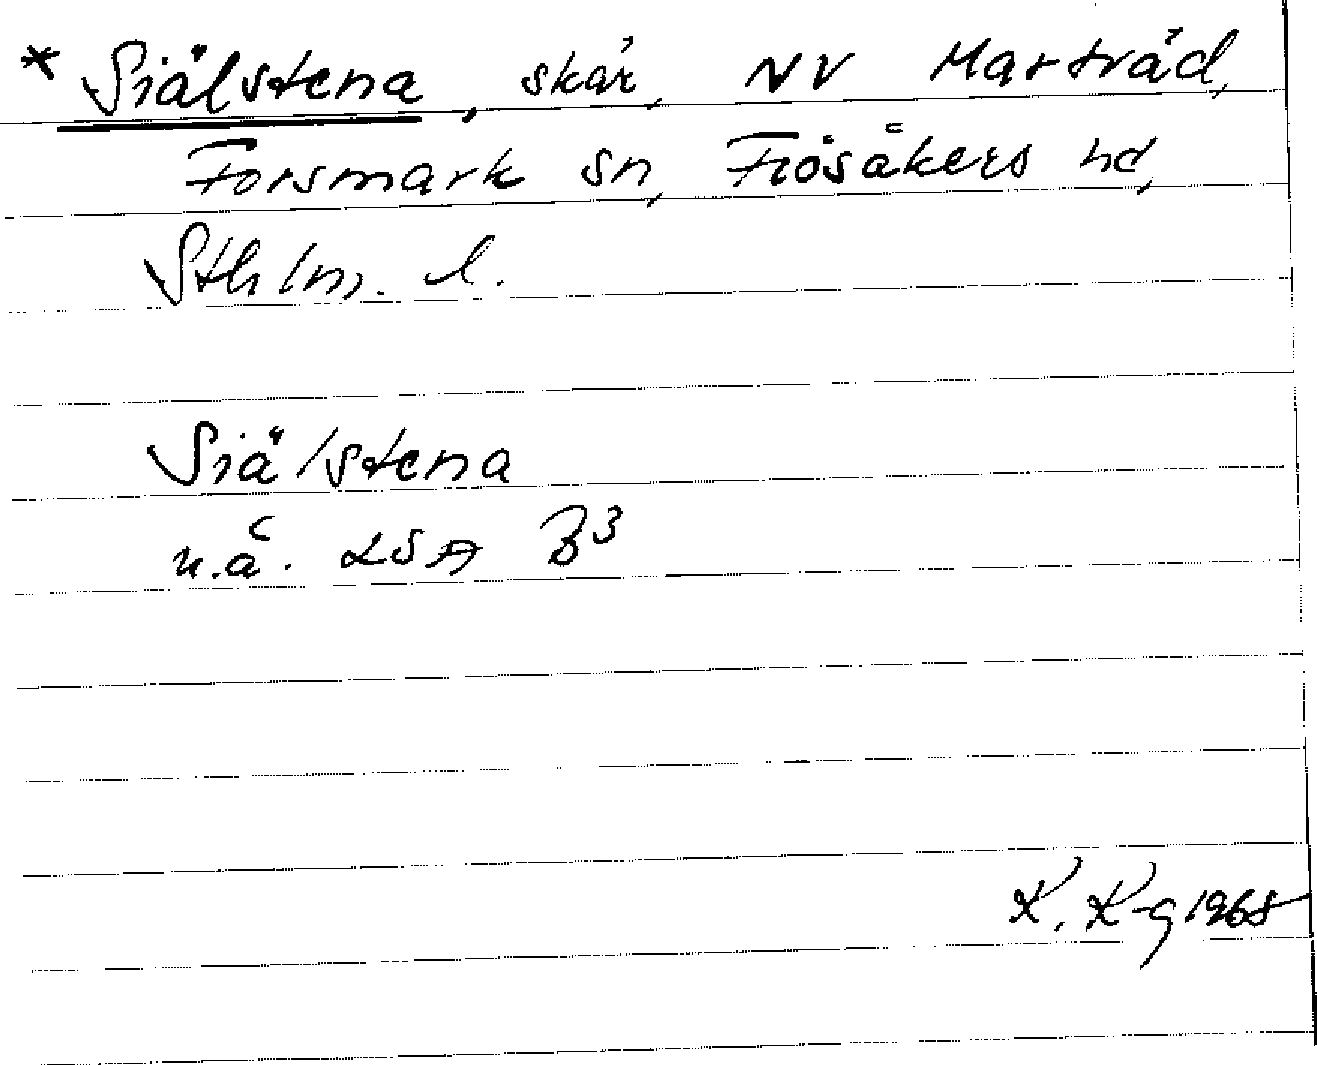 * Siälstena, skär, NV Marträd,
Forsmark sn, Frösåkers hd,
Sthlm. l.
Siälstena
u.å. LSA B3
K. K-g 1968